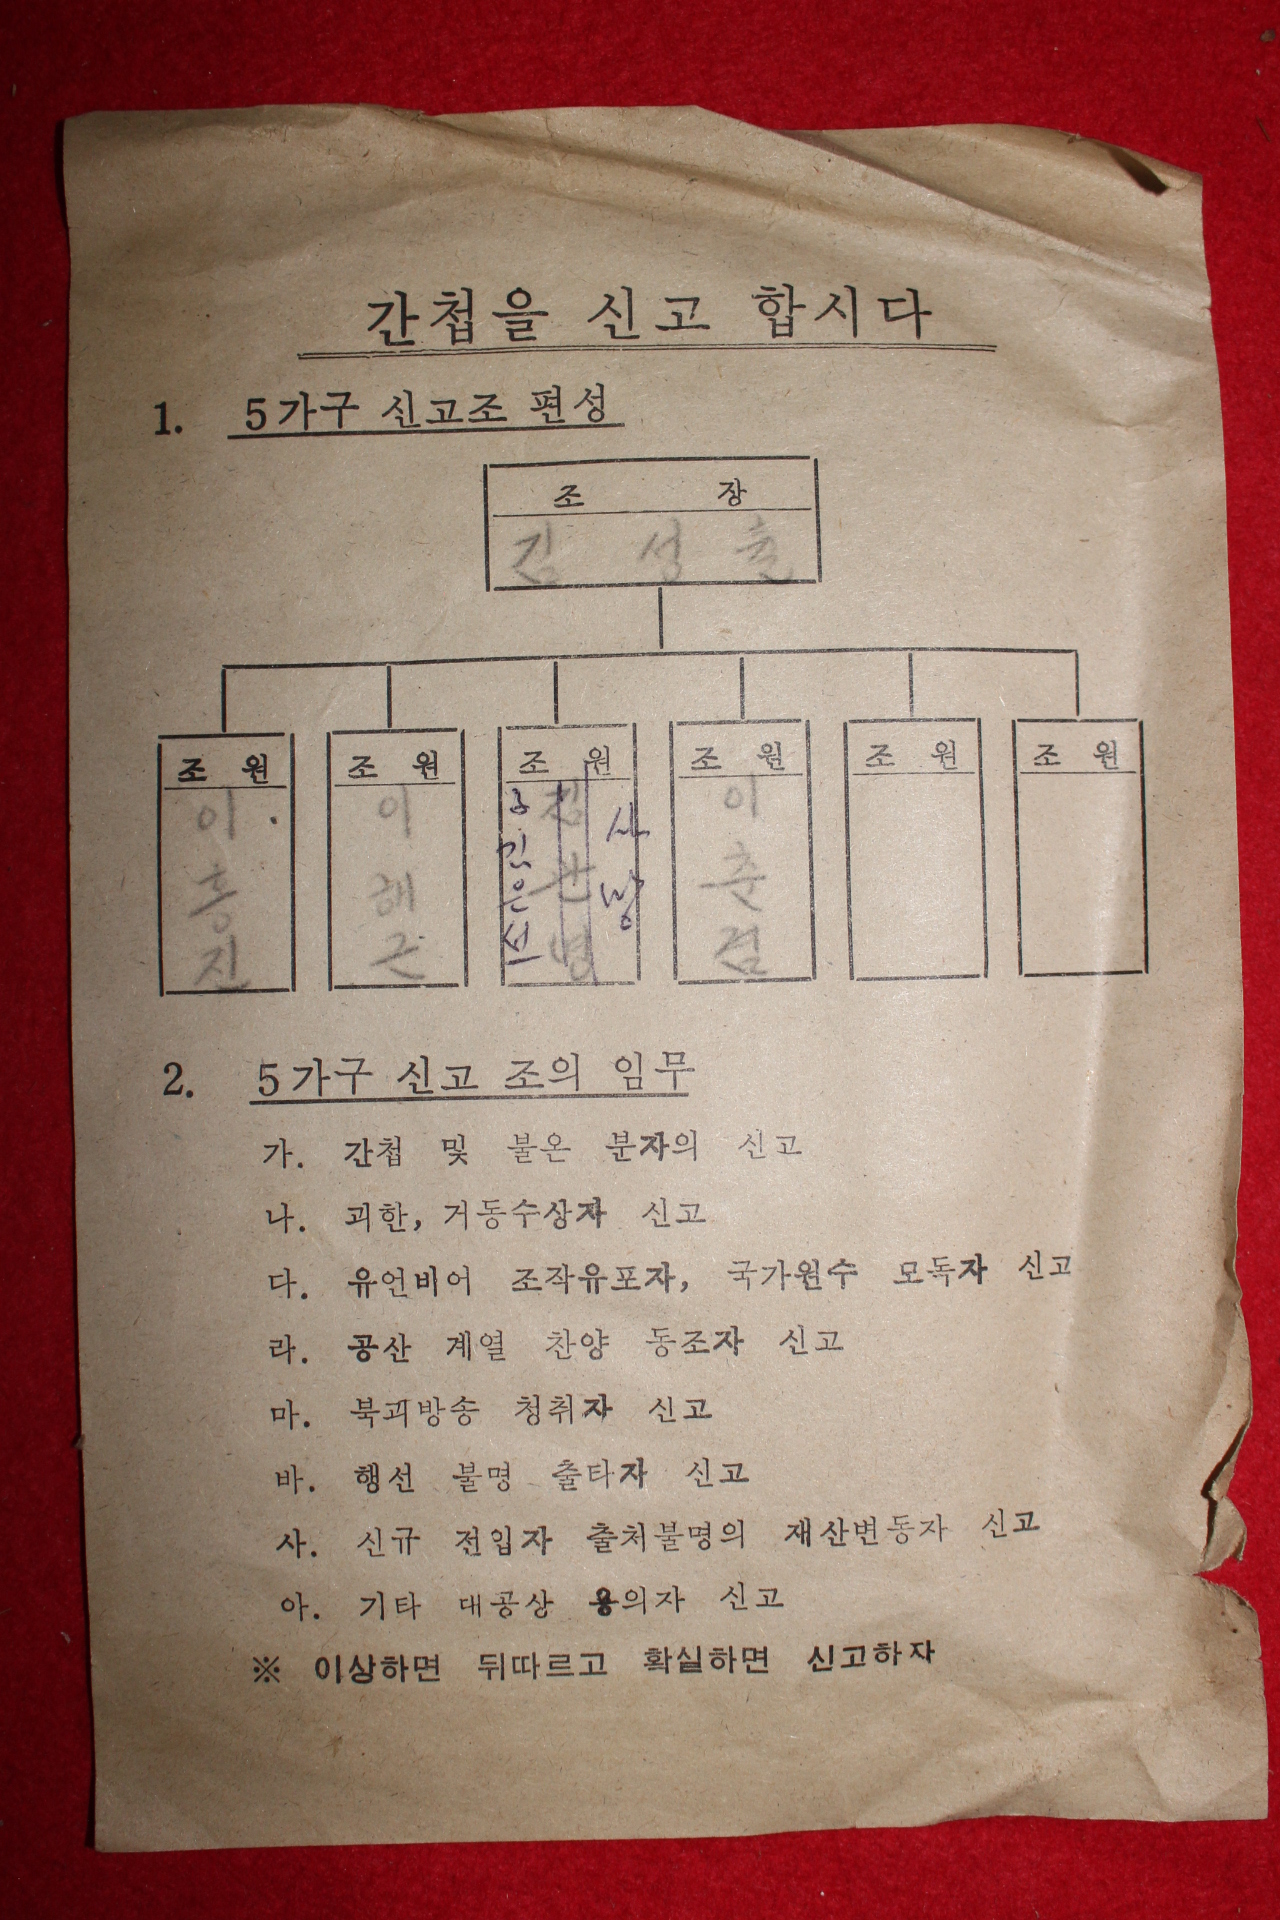 간첩을 신고 합시다
1. 5가구 신고조 편성
조 장
김 성
조 원 조 원 조 원 조 원 조 원 조 원
이 홍 진
이 해 근
김 병
사 망
김 은
이 춘 겸
2. 5가구 신고 조의 임무
가. 간첩 및 불온 분자의 신고
나. 괴한, 거동수상자 신고
다. 유언비어 조작유포자, 국가원수 모독자 신고
라. 공산 계열 찬양 동조자 신고
마. 북괴방송 청취자 신고
바. 행선 불명 출타자 신고
사. 신규 전입자 출처불명의 재산변동자 신고
아. 기타 대공상 용의자 신고
※ 이상하면 뒤따르고 확실하면 신고하자